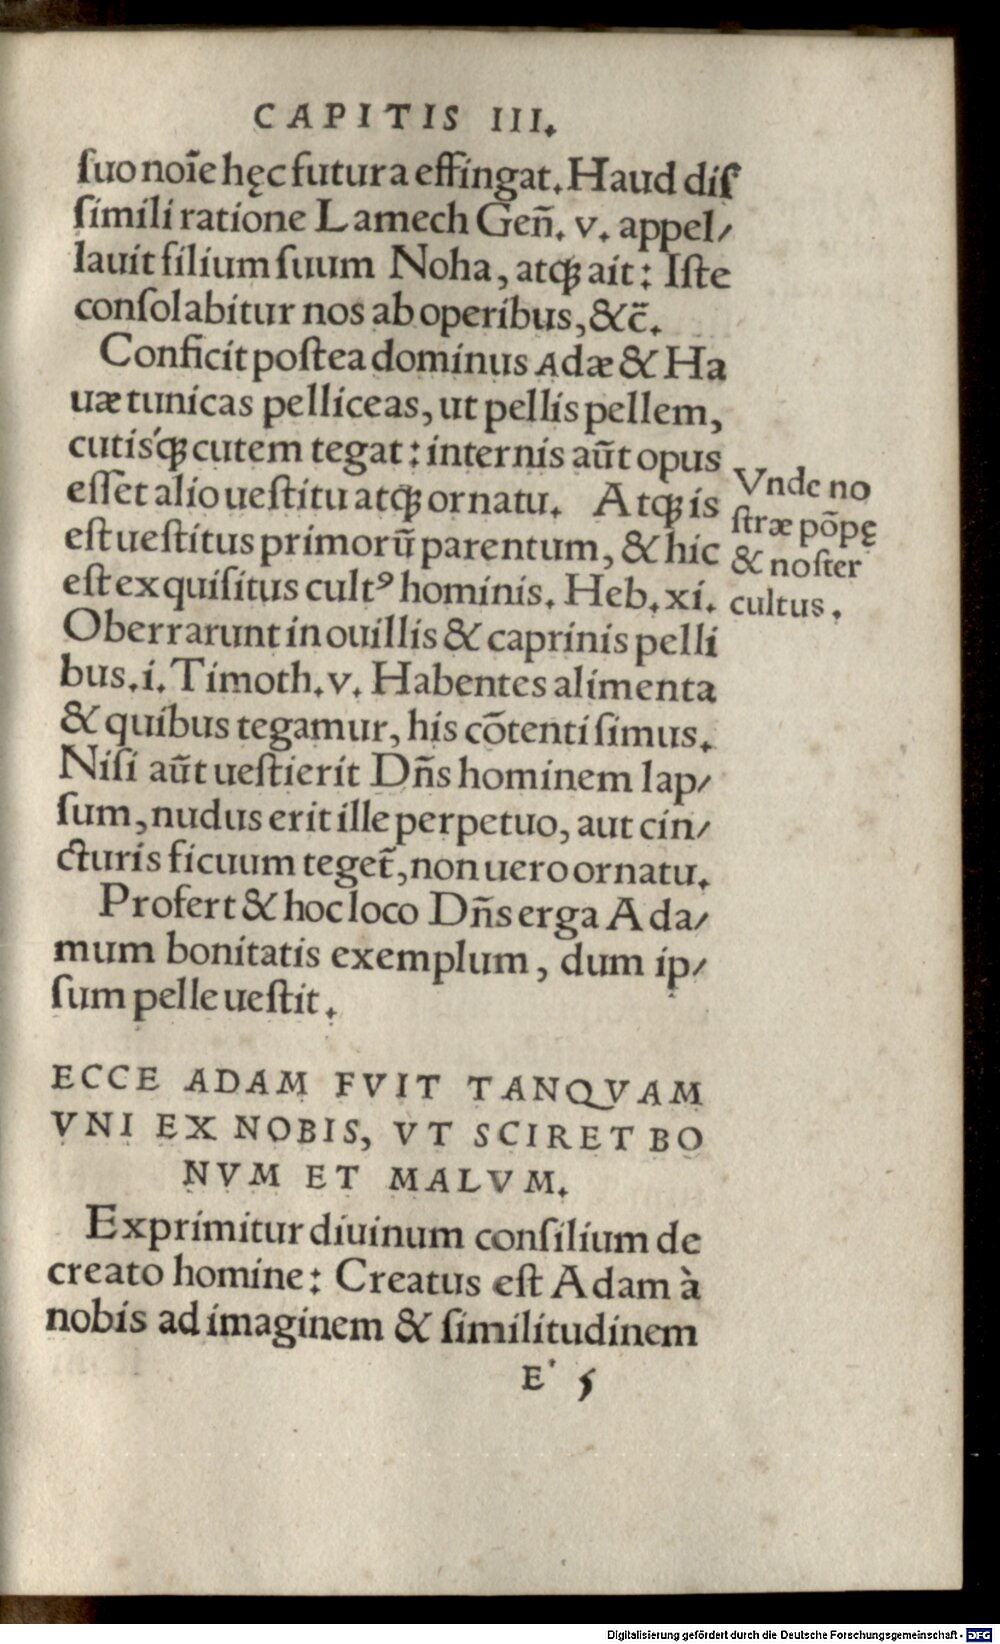 CAPITIS III.
ſuo noīe hęc futura effingat. Haud diſ
ſimili ratione Lamech Gen̄. v. appel⸗
lauit filium ſuum Noha, atq́ꝫ ait: Iſte
conſolabitur nos ab operibus, &c̄.
Conficit poſtea dominus Adæ & Ha
uæ tunicas pelliceas, ut pellis pellem,
cutiśqꝫ cutem tegat: internis aūt opus
eſſet alio ueſtitu atqꝫ ornatu. Atqꝫ is
eſt ueſtitus primorū parentum, & hic
eſt exquiſitus cultꝰ hominis. Heb. xi.
Oberrarunt in ouillis & caprinis pelli
bus. i. Timoth. v. Habentes alimenta
& quibus tegamur, his cōtenti ſimus.
Niſi aūt ueſtierit Dn̄s hominem lap⸗
ſum, nudus erit ille perpetuo, aut cin⸗
cturis ficuum teget̄, non uero ornatu.
Profert & hoc loco Dn̄s erga Ada⸗
mum bonitatis exemplum, dum ip⸗
ſum pelle ueſtit.
Vnde no
ſtræ pōpę
& noſter
cultus.
ECCE ADAM FVIT TANQVAM
VNI EX NOBIS, VT SCIRET BO
NVM ET MALVM.
Exprimitur diuinum conſilium de
creato homine: Creatus eſt Adam à
nobis ad imaginem & ſimilitudinem
E 5
Digitalisierung gefördert durch die Deutsche Forschungsgemeinschaft - DFG